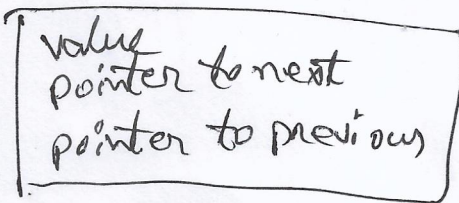 value
pointer to next
pointer to previous